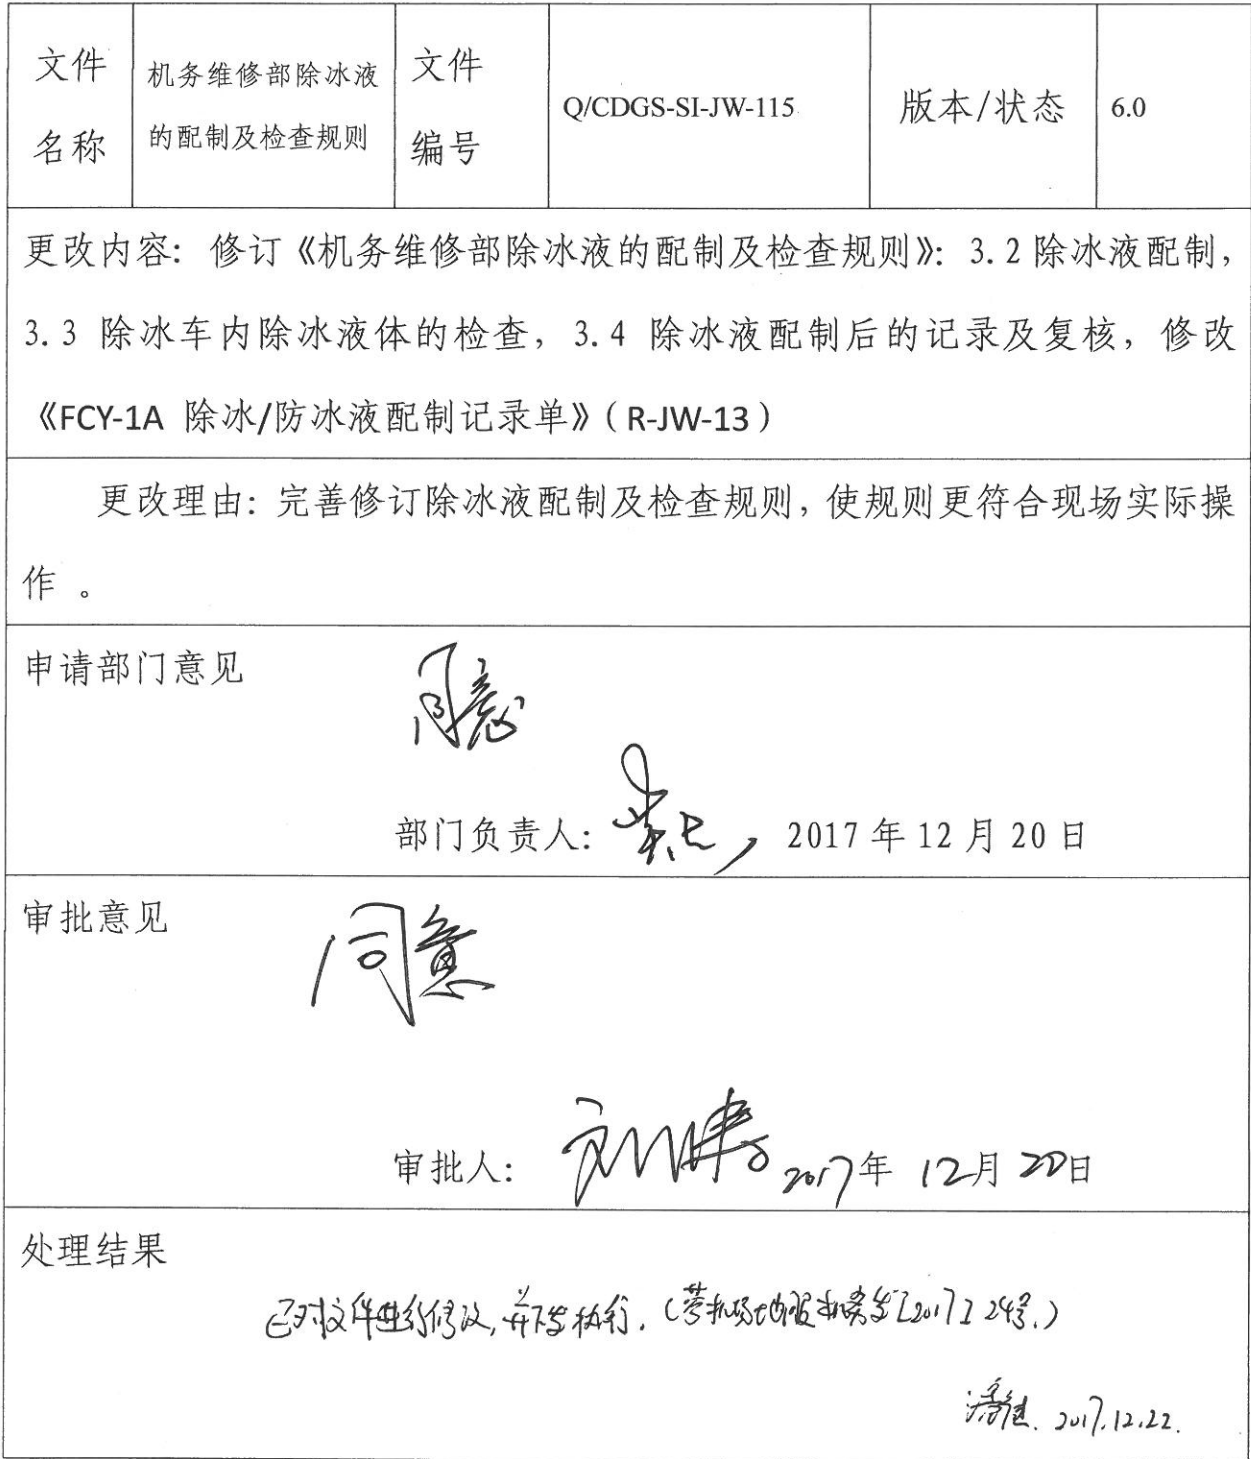 文件名称 机务维修部除冰液的配制及检查规则 文件编号 Q/CDGS-SI-JW-115 版本/状态 6.0
更改内容：修订《机务维修部除冰液的配制及检查规则》：3.2除冰液配制，
3.3 除冰车内除冰液体的检查，3.4 除冰液配制后的记录及复核，修改
《FCY-1A 除冰/防冰液配制记录单》（R-JW-13）
更改理由：完善修订除冰液配制及检查规则，使规则更符合现场实际操
作 。
申请部门意见
同意
部门负责人： 2017年12月20日
审批意见
同意
审批人： 2017年 12月 20日
处理结果
已对文件进行修改，并下发执行.（蓉机场地服机务发[2017]24号.）
2017.12.22.